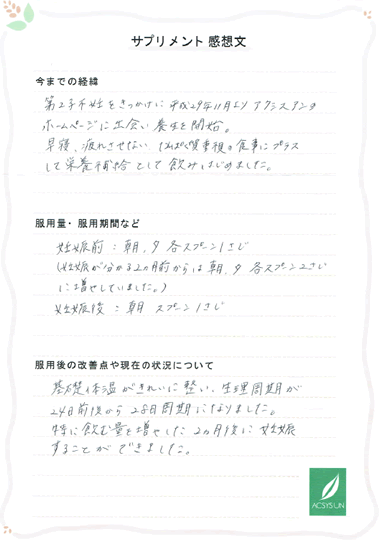 サプリメント 感想文
今までの経緯
第2子不妊をきっかけに平成29年11月よりアクシスアンの
ホームページに出会い養生を開始。
早寝、疲れさせない、たんぱく質重視の食事にプラス
して栄養補給として飲みはじめました。
服用量・服用期間など
妊娠前：朝、夕 各スプーン1さじ
(妊娠が分かる2ヵ月前からは朝、夕 各スプーン2さじ
に増やしていました。)
妊娠後：朝 スプーン1さじ
服用後の改善点や現在の状況について
基礎体温がきれいに整い、生理周期が
24日前後から28日周期になりました。
特に飲む量を増やした2ヵ月後に妊娠
することができました。
ACSYSUN